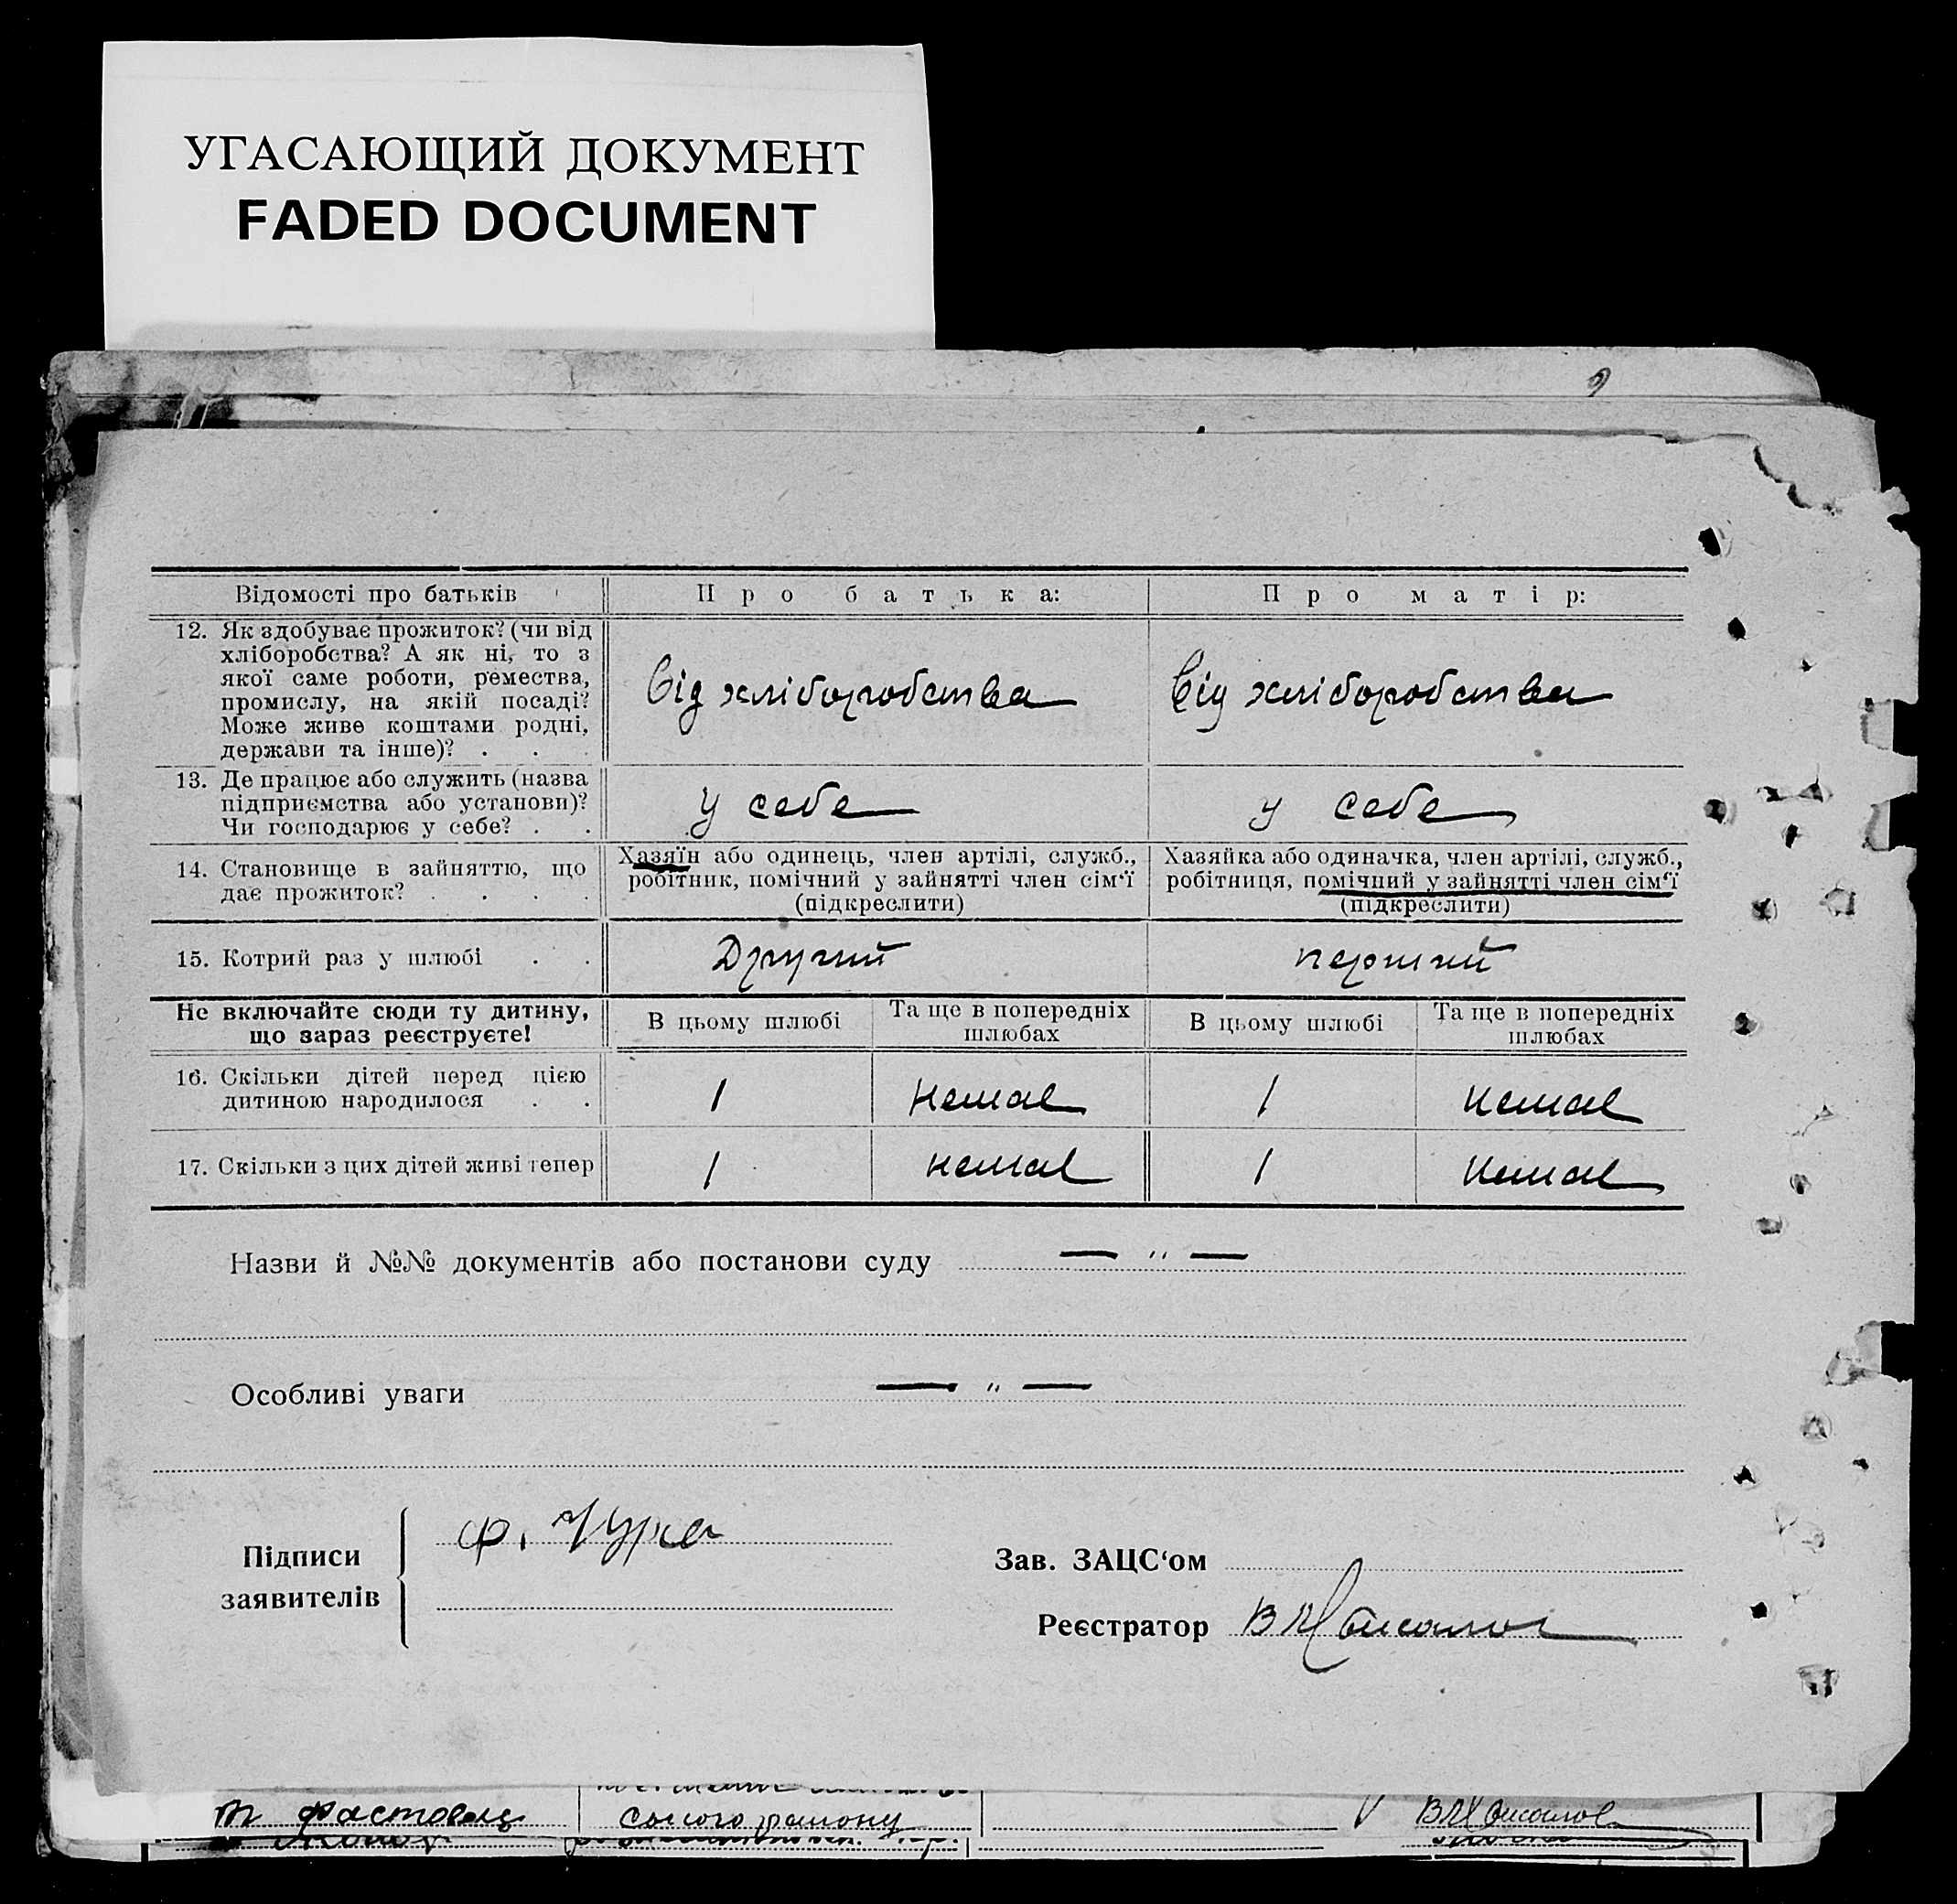 УГАСАЮЩИЙ ДОКУМЕНТ
FADED DOCUMENT
Відомості про батьків
Про батька:
Про матір:
12. Як здобуває прожиток? (чи від
хліборобства? А як ні, то з
якої саме роботи, ремества,
промислу, на якій посаді?
Може живе коштами родні,
держави та інше)? . .
Від хліборобства
Від хліборобства
13. Де працює або служить (назва
підприємства або установи)?
Чи господарює у себе? . .
у себе
у себе
14. Становище в зайняттю, що
дає прожиток? . . . .
Хазяїн або одинець, член артілі, служб.,
робітник, помічний у зайнятті член сім‘ї
(підкреслити)
Хазяйка або одиначка, член артілі, служб.,
робітниця, помічний у зайнятті член сім‘ї
(підкреслити)
15. Котрий раз у шлюбі . .
Другий
перший
Не включайте сюди ту дитину,
що зараз реєструєте!
В цьому шлюбі
Та ще в попередніх
шлюбах
В цьому шлюбі
Та ще в попередніх
шлюбах
16. Скільки дітей перед цією
дитиною народилося . .
1
немає
1
немає
17. Скільки з цих дітей живі тепер
1
немає
1
немає
Назви й №№ документів або постанови суду — „ —
Особливі уваги — „ —
Підписи
заявителів
Ф. Чура
Зав. ЗАЦС‘ом
Реєстратор
Фастовец
ського району